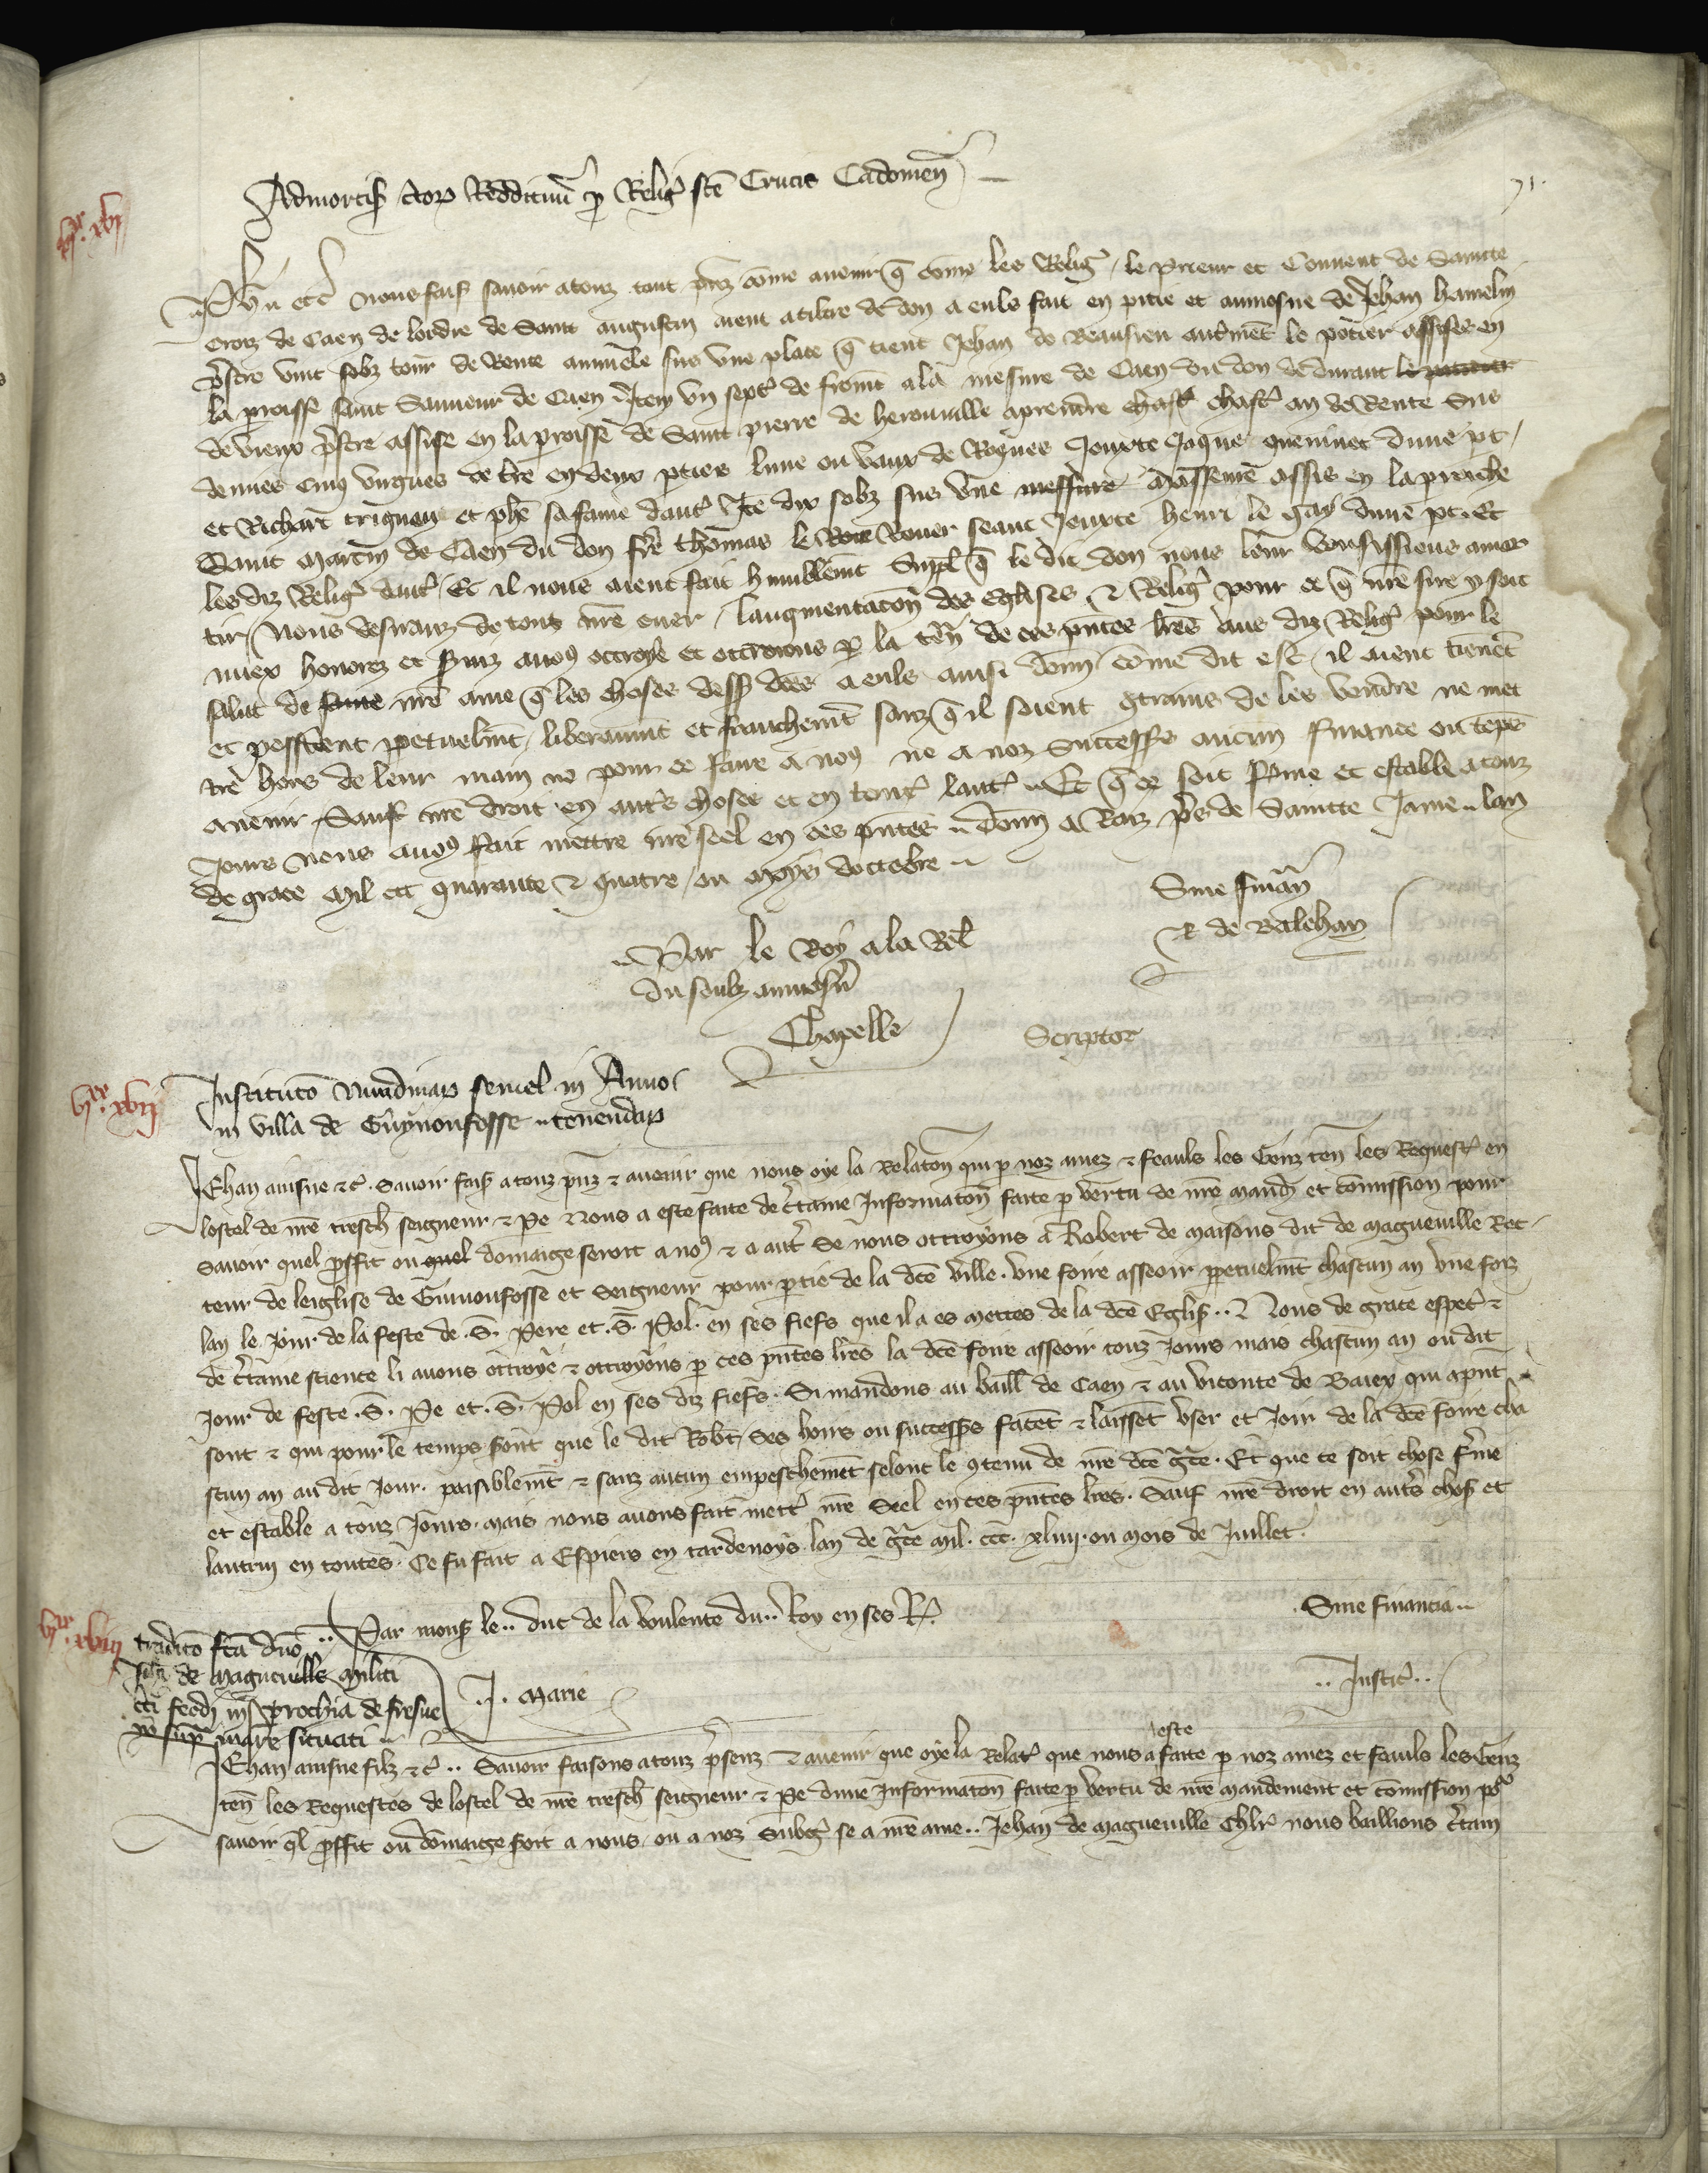 71.
Admortiſ ctoꝝ Reddituū ꝑ Relig̃ ſcē Crucis Cadomeñ
vjxx. xvj
Phͤ etc̃ nous faiſ sauoir a touz tant pñz cōme auenir q̃ cōme les Relig̃ / le prieur et Conuent de Saincte
Croiz de Caen de lordre de Saint augustin aient a tiltre de don a euls fait en pitie et aumosne de Jehan hamelin
p̃stre vint solz tour̃ de Rente annuele sus vne place q̃ tient Jehan de Beausieu autm̃et le potier assises en
la p̃oisse saint Sauueur de Caen Item vn sept̃ de from̃t a la mesure de Caen du don de durant
de vieux p̃stre assise en la p̃oisse de Saint pierre de herouuille aprendre chaſc̃ an de Rente sus
demies cinq vergees de t̃re en deux p̃ties lune ou vaux de Roques Jouxte Jaques dune pt /
et Richart trignon et ph̃e sa fame daut̃ Itē dix solz sus vne assis en la p̃oiche
Saint martin de Caen du don fr̃e thomas le Rouer seant Jouxte henri le gay dune pt. Et
les diz Relig̃ daut̃ Et il nous aient fait humblem̃t Suppl̃ q̃ le dit don nous leur vousissions amor
tir / Nous desiranz de tout nr̃e cuer / laugmentacōn des eglises & Relig̃ pour ce q̃ nr̃e sire y soit
miex honorez et seruiz auōs ottroye et ottroions ꝑ la ten̄ de ces pñtes lr̃es aus diz Relig̃ pour le
salut de nr̃e ame q̃ les choses dess̃ dc̃es a euls ainsi donn̄ cōme dit est / il aient tienēt
et possident p̃petuelm̃t / liberaumt et franchem̃t sanz q̃ il soient 9trains de les vendre ne met
tre hors de leur main ne pour ce faire a noꝯ ne a noz Success̃ aucun finance ou tēps
auenir / Sauf nr̃e droit en aut̃s choses et en tout̃ lautr̃ Et q̃ ce soit ferme et estable a touz
Jours nous auoꝯ fait mettre nr̃e seel en ces pñtes donn̄ a Raiz p̃s de Saincte Jame lan
de grace mil ccc quarante & quatre / ou moys doctobre
Sine finañ
R de Balehan
Par le Roy a la Rel̃
du soubz aumosñ
Chapelle
Scriptor
vjxx. xvij
Institutō Nundinaꝝ semel in Anno
in villa de Guynonfosse tenendaꝝ
Jehan ainsne &c̃. Sauoir faiſ a touz pñz & auenir que nous oye la Relatōn qui ꝑ noz amez & feauls les Genz ten̄ les Requeſt̃ en
lostel de nr̃e tresch̃ seigneur & Pe Nous a este faite de c̃taine Informatōn faite ꝑ vertu de nr̃e mand̃ et cōmission pour
sauoir quel p̃ffit ou quel domaige seroit a noꝯ & a aut̃ se nous ottroyons a Robert de maisons dit de magneuille Rec
teur de leiglise de Guinonfosse et Seigneur pour p̃tie de la dc̃e ville. vne foire asseoir p̃petuelm̃t chascun an vne foiz
lan le jour de la feste de .S. Pere et .S. Pol. en ses fiefs que il a es mettes de la dc̃e Egliſ.. Nous de grace espec̃ &
de c̃taine science li auons ottroye & ottroyons ꝑ ces pñtes lr̃es la dc̃e foire asseoir touz Jours mais chascun an ou dit
Jour de feste .S. Pe et .S. Pol en ses diz fiefs. Si mandons au baill̃ de Caen & au viconte de Baiex qui apñt
sont & qui pour le temps seront que le dit Robt̃ ses hoirs ou success̃s facēt & laissēt vser et Joir de la dc̃e foire cha
scun an au dit Jour. paisiblem̃t & sanz aucun empeschemēt selont le 9tenu de nr̃e dc̃e gr̃ce. Et que ce soit chose ferme
et estable a touz Jours. mais nous auons fait mett̃ nr̃e Seel en ces pñtes lr̃es. Sauf nr̃e droit en aut̃s choſ et
lautrui en toutes. Ce fu fait a Espiers en tardenoys lan de gr̃ce mil. ccc. xliiij. ou mois de Juillet.
Par mons̃ le.. duc de la voulente du.. Roy en ses R̃.
Sine financia
J. Marie
..Justic̃..
vjxx. xviij
traditō fc̃a dn̄o
Joh̃i de Magneuille militi
cti feodi in prochia de fresne
sup̃ mare situati
Jehan ainsne filz &c̃.. Sauoir faisons a touz p̃senz & auenir que oye la Relat̃ que nous a este faite ꝑ noz amez et feauls les Genz
ten̄ les Requestes de lostel de nr̃e tresch̃ seigneur & Pe dune Informatōn faite ꝑ vertu de nr̃e mandement et cōmission pꝰ
sauoir q̃l p̃ffit ou dōmaige seroit a nous ou a noz Subg̃ se a nr̃e ame.. Jehan de magneuille Chl̃r nous baillions c̃tain